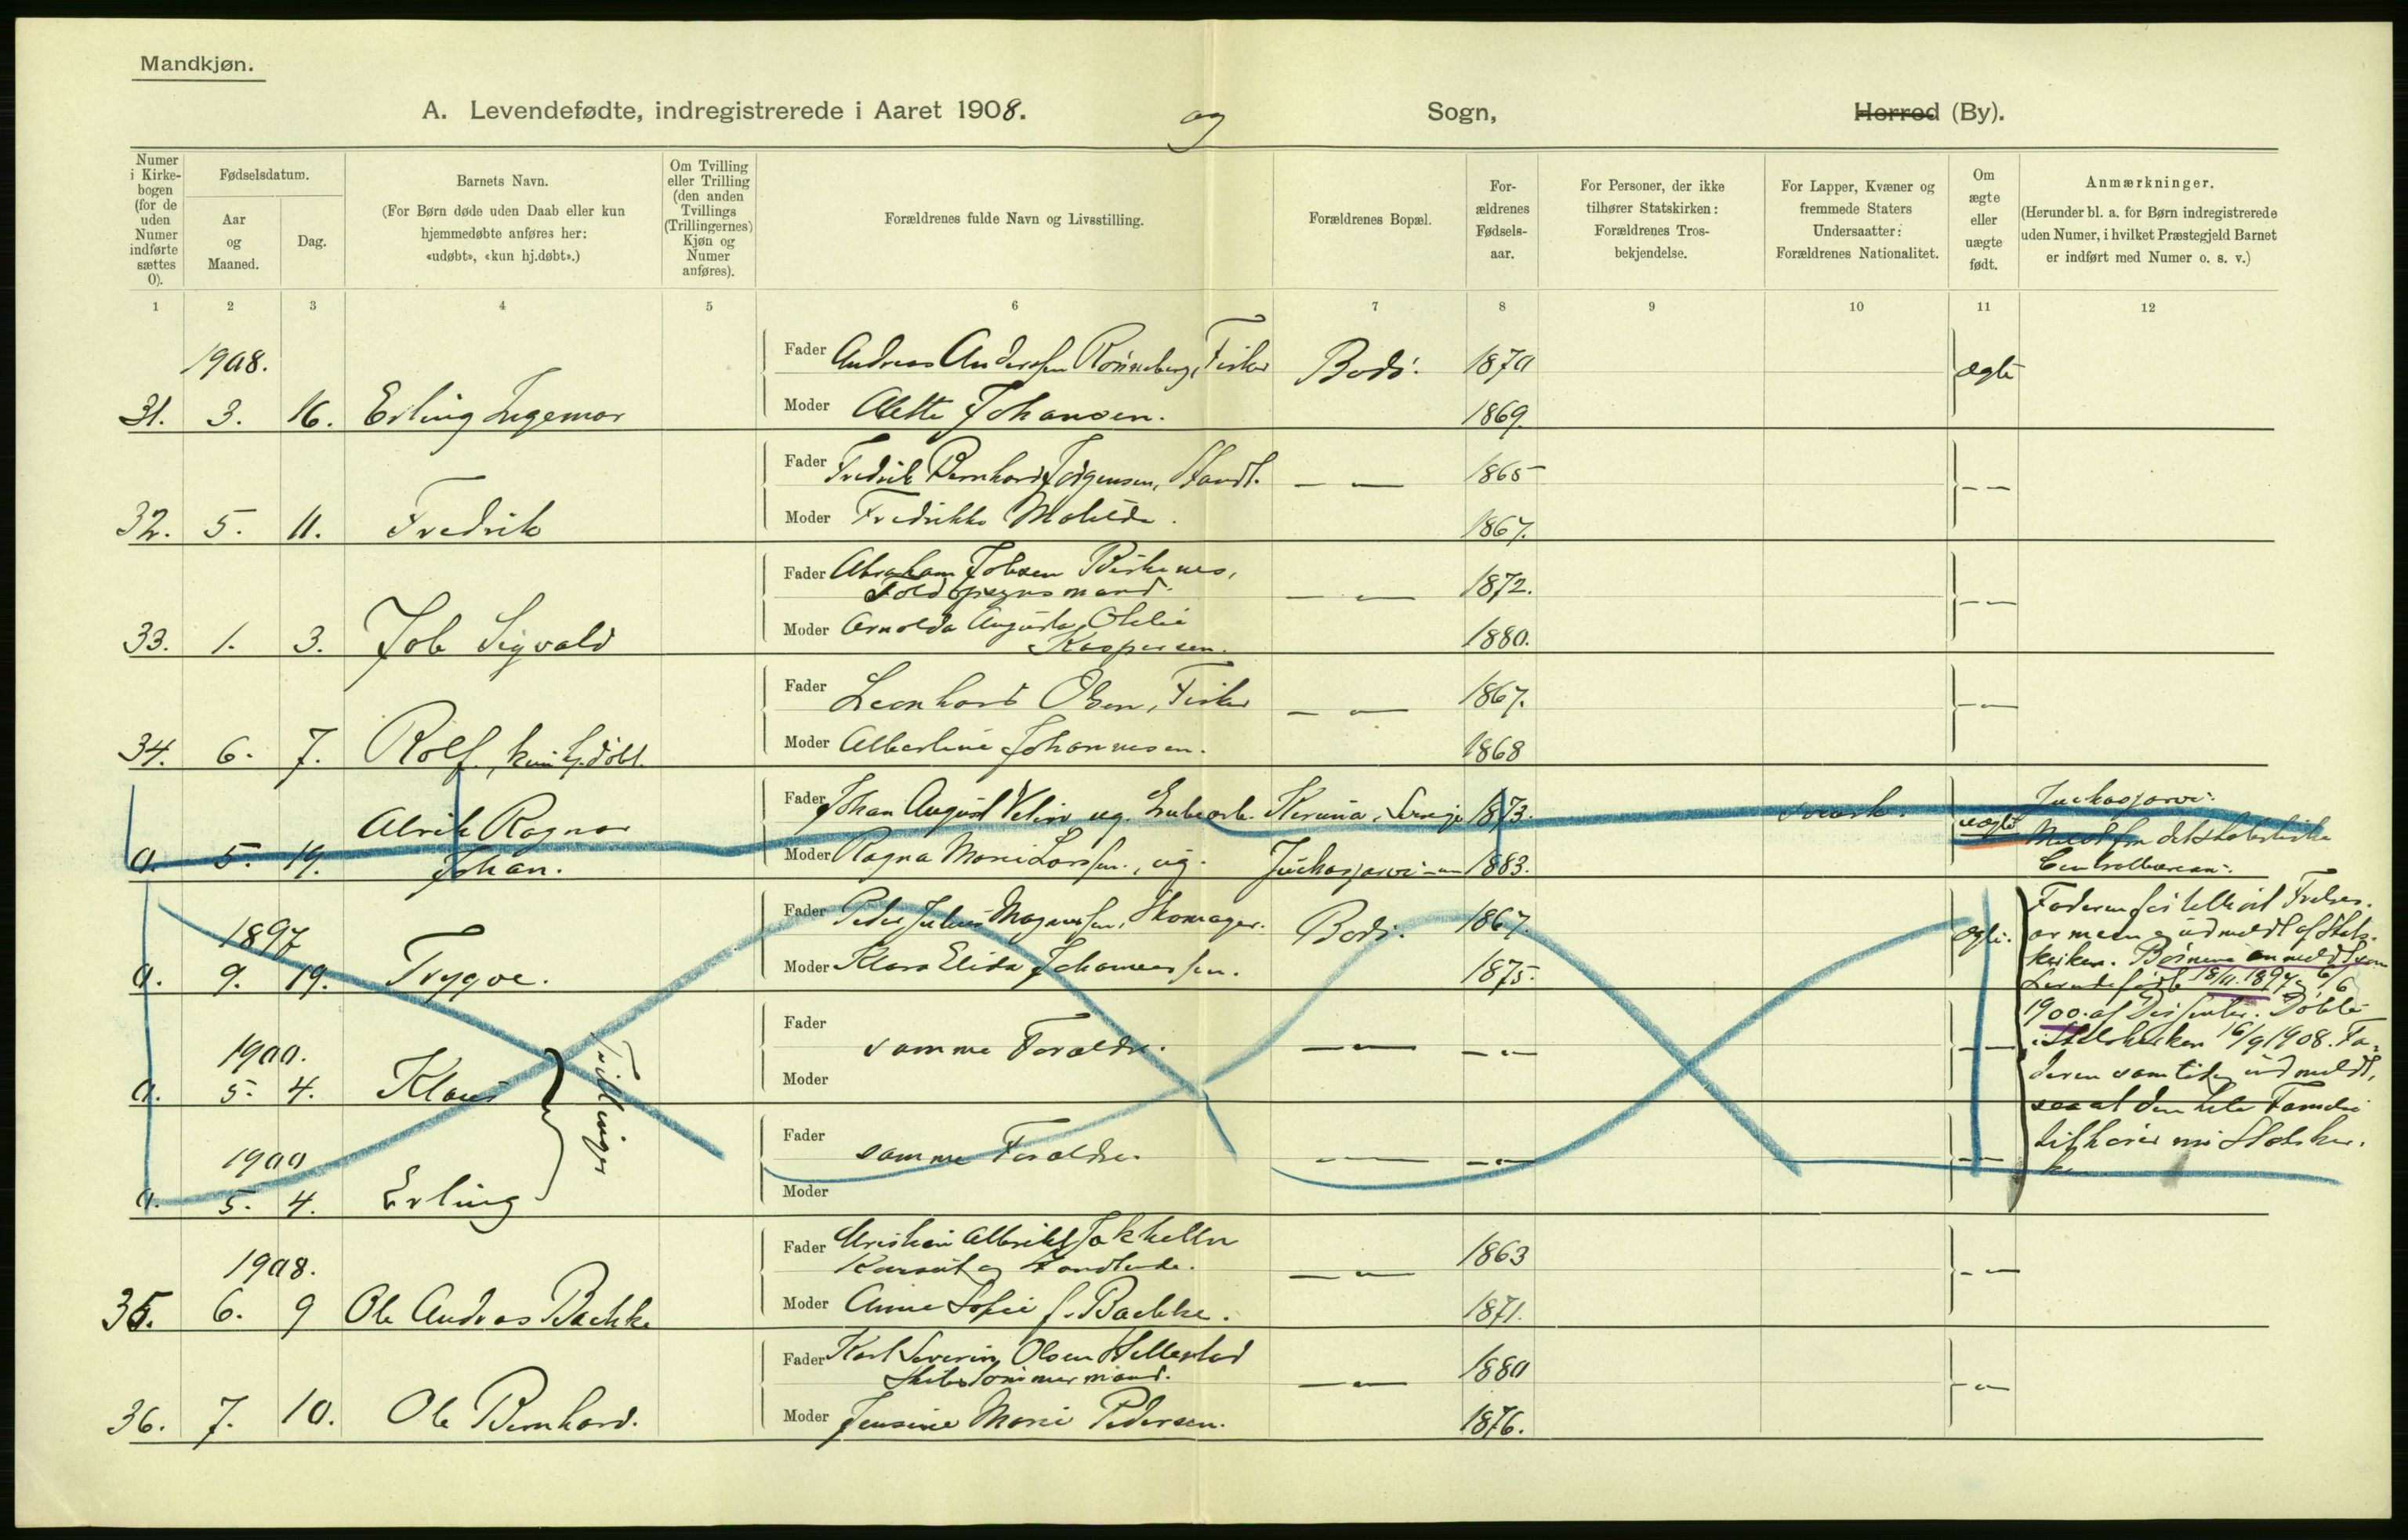 Mandkjøn.
A. Levendefødte, indregistrerede i Aaret 1908. og Sogn, Herred (By).
Numer i Kirkebogen (for de uden Numer indførte sættes 0).
Fødselsdatum.
Aar og Maaned.
Dag.
Barnets Navn.
(For Børn døde uden Daab eller kun hjemmedøbte anføres her: «udøbt», «kun hj.døbt».)
Om Tvilling eller Trilling (den anden Tvillings (Trillingernes) Kjøn og Numer anføres).
Forældrenes fulde Navn og Livsstilling.
Forældrenes Bopæl.
Forældrenes Fødselsaar.
For Personer, der ikke tilhører Statskirken: Forældrenes Trosbekjendelse.
For Lapper, Kvæner og fremmede Staters Undersaatter: Forældrenes Nationalitet.
Om ægte eller uægte født.
Anmærkninger.
(Herunder bl. a. for Børn indregistrerede uden Numer, i hvilket Præstegjeld Barnet er indført med Numer o. s. v.)
1 2 3 4 5 6 7 8 9 10 11 12
1908.
Fader Andreas Anderssen Rønneberg, Fisker Bodø. 1870 ægte
31. 3. 16. Erling Ingemar Moder Alette Johansen. 1869.
Fader Fredrik Bernhard Jørgensen, Handl. — — 1865 — —
32. 5. 11. Fredrik Moder Fredrikke Matilde. 1867.
Fader Abraham Jobsen Birkenes,
Toldopsynsmand. — — 1872. — —
33. 1. 3. Job Sigvald Moder Arnolda Augusta Otelie
Kaspersen. 1880.
Fader Leonhard Olsen, Fisker — — 1867. — —
34. 6. 7. Rolf, kun hj.døbt. Moder Albertine Johannesen. 1868
Alrik Ragnar Fader Johan August Velin ug. Grubearb. Kiruna, Sverige 1873. svensk. uægte Juckasjarvi.
0. 5. 19. Johan. Moder Ragna Marie Larssen, ug. Juckasjarvi 1883. Meldt fra det statistiske
Centralbureau.
1897 Fader Peder Julius Magnussen, Skomager. Bodø. 1867. ægte.
0. 9. 19. Trygve. Moder Klara Elida Johannessen. 1875.
Faderen før tilhørt Frelses-
armeen og udmeldt af Stats-
kirken. Børnene anmeldt som
Levendefødte 18/11 1897 og 6/6
1900 af Dissenter. Døbte
i Statskirken 16/9 1908. Fa-
deren samtidig indmeldt,
saa at den hele Familie
tilhører nu Statskir-
ken
1900. Fader samme Forældre. — — — — — —
0. 5. 4. Klaus Moder
Tvillinger
1900 Fader samme Forældre. — — — — — —
0. 5. 4. Erling Moder
1908. Fader Kristian Albrikt Jakhelln
Konsul og Handlende. — — 1863 — —
35. 6. 9 Ole Andreas Bachke Moder Anne Sofie f. Bachke. 1871.
Fader Karl Severin Olsen Hellestad
Skibstømmermand. — — 1880 — —
36. 7. 10. Ole Bernhard. Moder Jensine Marie Pedersen. 1876.